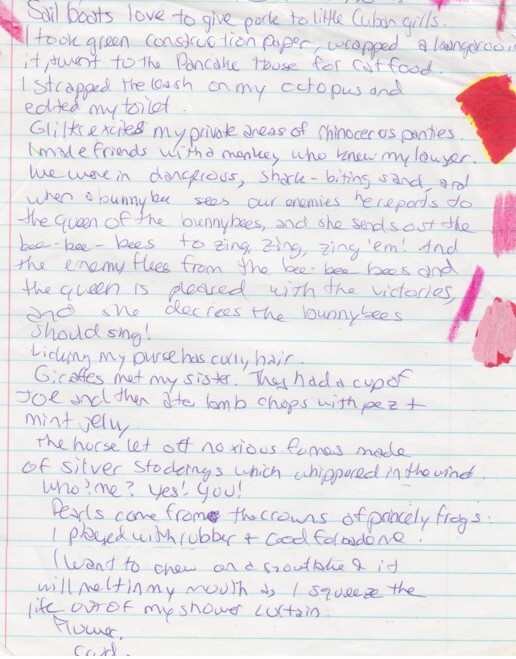 Sail boats love to give pork to little Cuban girls.
I took green construction paper, wrapped a kangaroo in
it, & went to the Pancake House for cat food.
I strapped the leash on my octopus and
edited my toilet.
excites my private areas of rhinoceros panties.
I made friends with a monkey who knew my lawyer.
We were in dangerous, shark-biting sand, and
when a bunnybee sees our enemies he reports to
the queen of the bunnybees, and she sends out the
bee-bee-bees to zing, zing, zing 'em! And
the enemy flees from the bee-bee-bees and
the queen is pleased with the victories,
and she decrees the bunnybees
should sing!
Licking my purse has curly hair.
Giraffes met my sister. They had a cup of
Joe and then ate lamb chops with pez +
mint jelly.
The horse let off noxious fumes made
of silver stockings which whippered in the wind.
Who? me? Yes! You!
Pearls come from the crowns of princely frogs.
I played with rubber +
I want to chew on a & it
will melt in my mouth as I squeeze the
life out of my shower curtain.
Flower.
Crud.